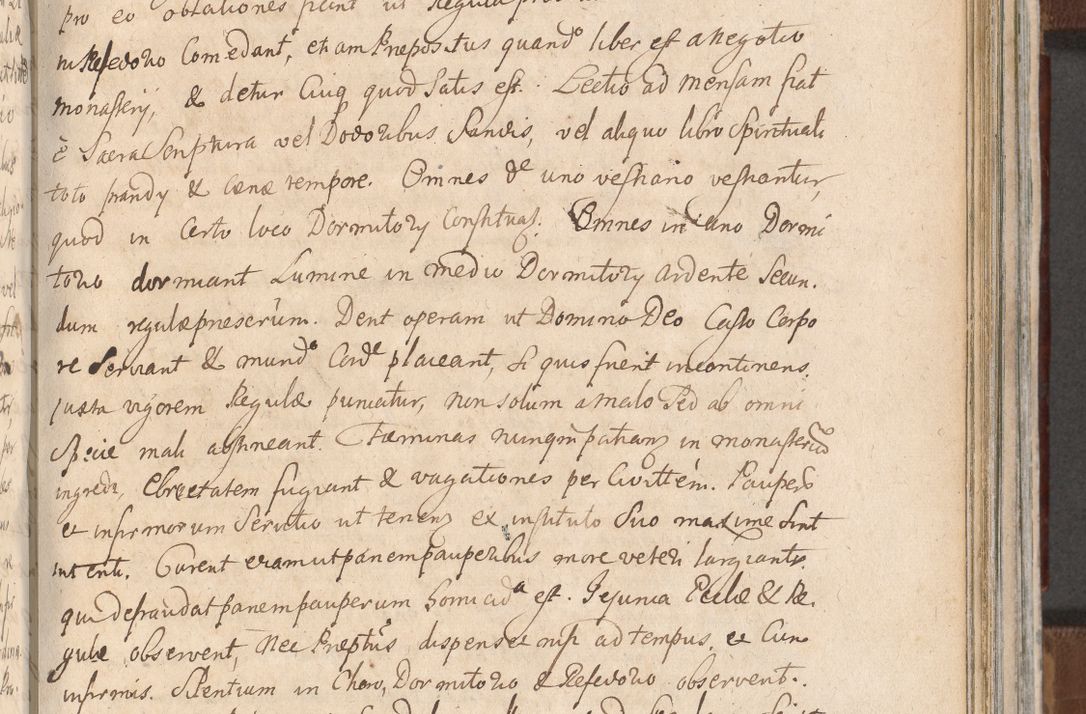 pro eo oblationes fient ut Regula
in Refectorio Comedant, etiam Prepositus quando liber est a Negotio
monasterij, & detur Cuiq quod satis est. Lectio ad mensam fiat
è Sacra Scriptura vel Doctoribus Sanctis, vel aliquo libro Spirituali
toto prandy & cænæ tempore. Omnes de uno vestiario vestiantur,
quod in Certo loco Dormitory Constituatz. Omnes in uno Dormi
torio dormiant Lumine in medio Dormitory ardente Secun.
dum regulæ præserum. Dent operam ut Domino Deo Casto Corpo
re Serviant & mundo Corde placeant, Si quis fuerit incontinens,
juxta vigorem Regulæ puniatur, non solum a malo Sed ab omni
Specie mali abstineant. Fæminas nunqm patianz in monasterio
ingredi, Ebrietatem fugiant & vagationes per Civittem. Pauperũ
et infirmorum Servitio ut tenenz ex instituto Suo maxime Sint
intenti. Curent etiam ut panem pauperibus more veteri largiantr.
qui defraudat panem pauperum homicida est. Jejunia Eccliæ & Re.
gulæ observent, Nec Preptus dispenset nisi ad tempus, et Cum
infirmis. Silentium in Choro, Dormitorio & Refectorio observent.